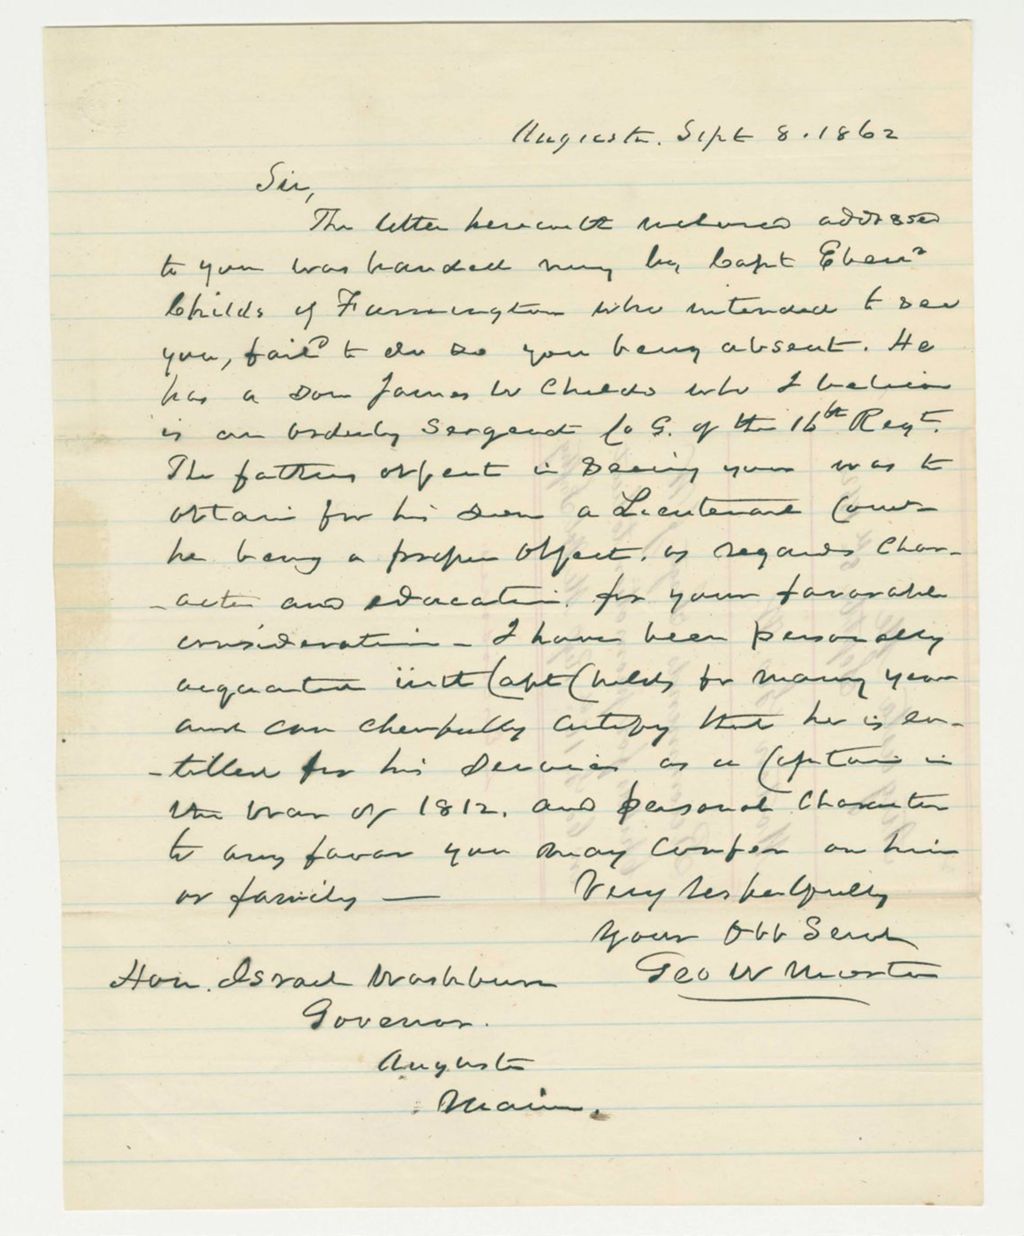 Augusta. Sept 8. 1862
Sir,
The letter herewith inclosed addressed
to you was handed me by Capt Ebenr
Childs of Farmington who intended to see
you, faild to do so you being absent. He
has a son James W Childs who I believe
is an orderly Sergeant Co G. of the 16th Regt.
The fathers object in seeing you was to
obtain for his son a Lieutenant Coms
he being a proper object. as regards Char-
-acter and education. for your favorable
consideration - I have been personally
acquainted with Capt Childs for many years
and can cheerfully certify that he is en-
-titled for his services as a Captain in
the War of 1812. and personal Character
to any favor you may confer on him
or family —
Very respectfully
Your Obt Servt
Geo W
Hon. Israel Washburn
Governor.
Augusta
Maine.